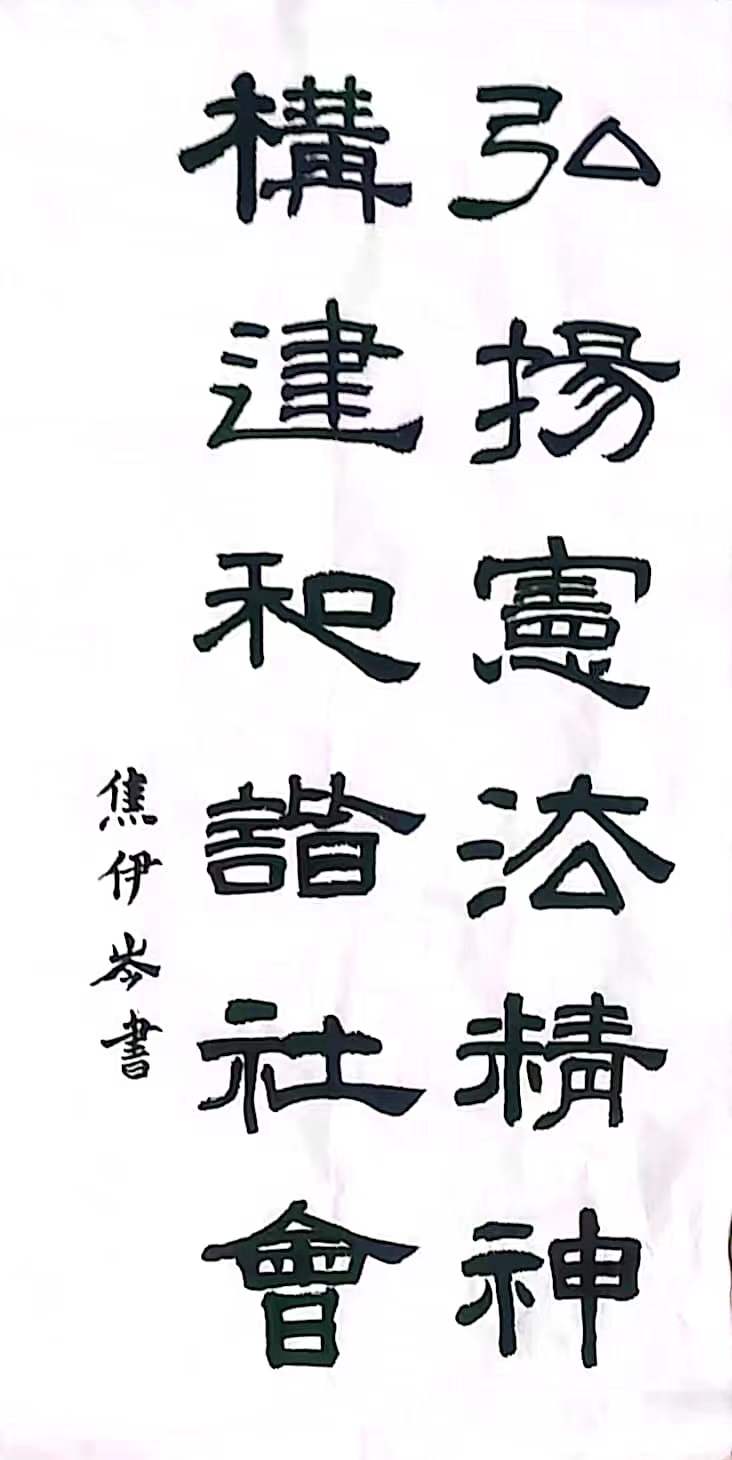 弘揚憲法精神
構建和諧社會
焦伊岑書